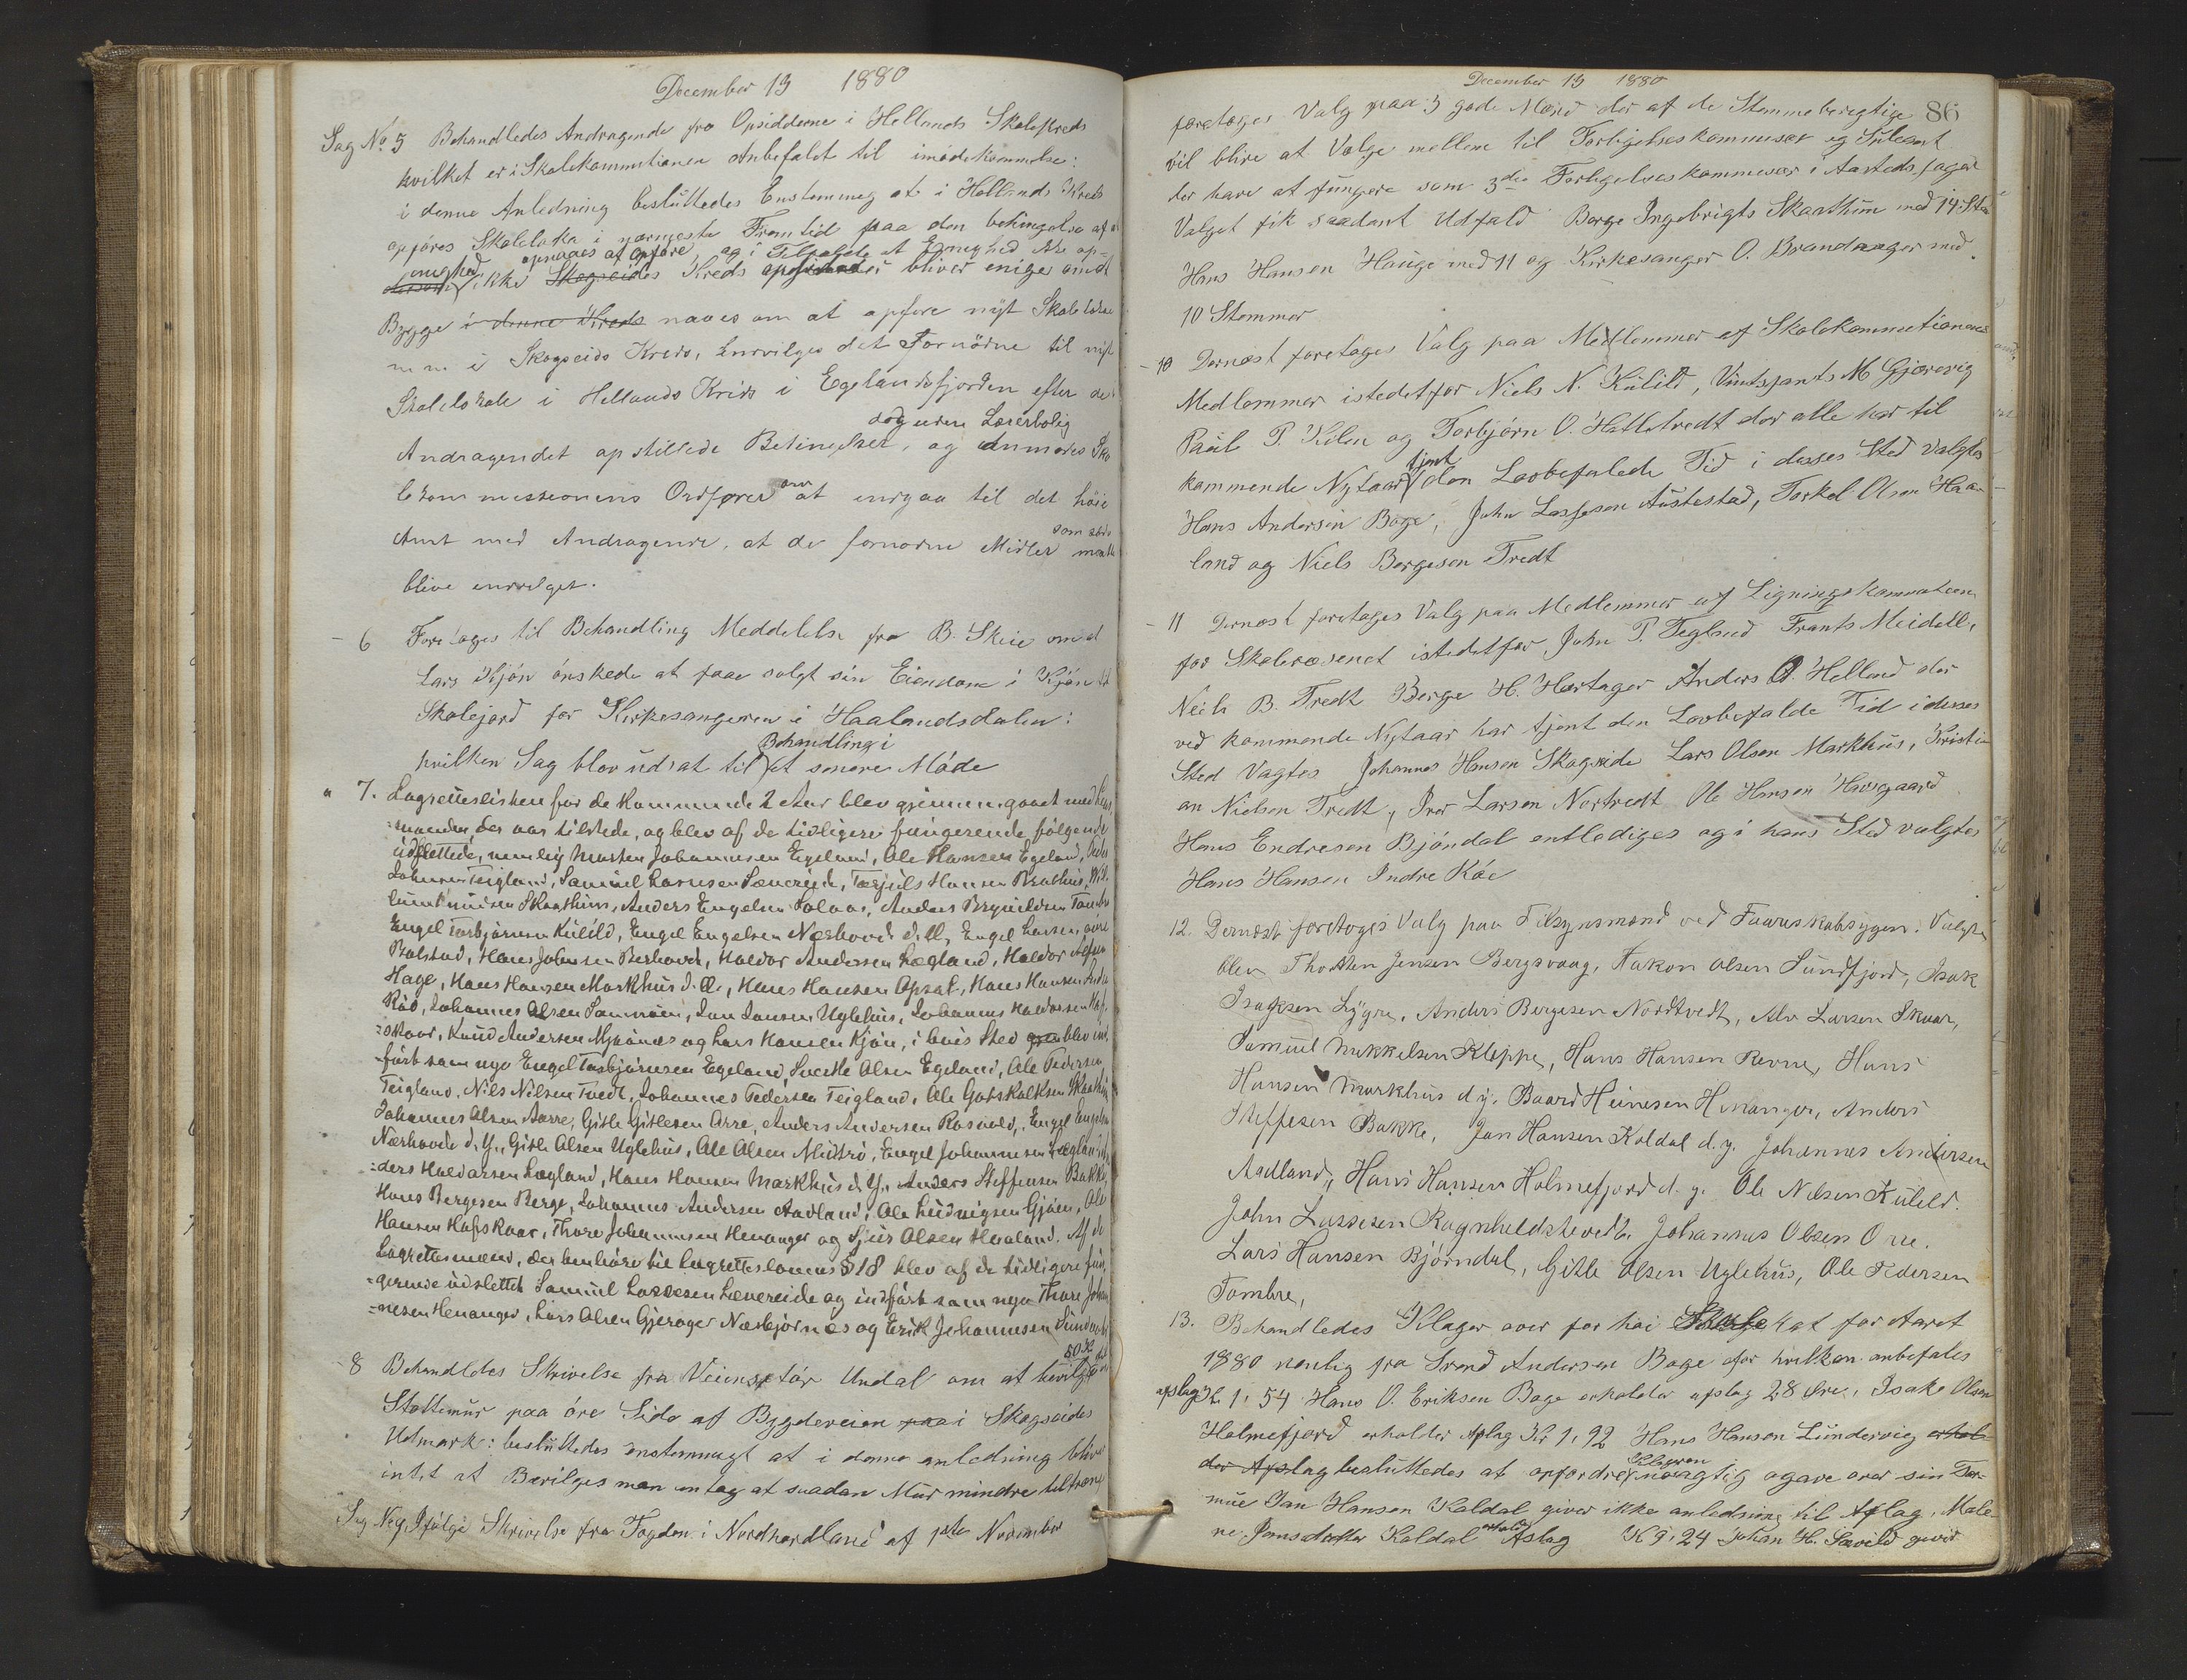 December 13 1880
Sag No 5 Behandledes Andragende fra Opsidderne i Hellands Skolekreds
hvilket er i Skolekommitionen Anbefalet til imødekommelse:
i denne Anledning besluttedes Enstemmig at i Hellands Kreds
opføres Skoleloka i nærmeste Fremtid paa den betingelse af at
enighed opnaaes at opføre og i Tilfælde at Enighed ikke op-
dersom ikke Skogseides Kreds opsiddere bliver enige om at
Bygge i denne Kreds naaes om at opføre nyt Skolelokale
m m i Skogseids Kreds, indvilges det Fornødne til nyt
Skolelokale i Hellands Kreds i Egelandsfjorden efter de i
dog uden Lærerbolig
Andragendet opstillede Betingelser, og anmodes Sko
lekommissionens Ordfører om at indgaa til det höie
Amt med Andragende, at de fornødne Midler som
blive indvilget.
- 6 Foretoges til Behandling Meddelelse fra B. Skeie om at
Lars Kjön önskede at faae solgt sin Eiendom i Kjön til
Skolejord for Kirkesangeren i Haalandsdalen:
hvilken Sag blev udsat til Behandling i et senere Möde
" 7. Lagretteslisten for de kommende 2 Aar blev gjennemgaaet med Lens
=manden, der var tilstede, og blev af de tidligere fungerende følgende
udslettede, nemlig Morten Johannesen Egeland, Ole Hansen Egeland, Peder
Johnsen Teigland, Samuel Larssen Lævereide, Torjuls Hansen Brathus,
Skaathun, Anders Engelsen Solaas, Anders Brynildsen Tombre
Engel Torbjørnsen Kulild, Engel Engelsen Nærhovde d. Æ, Engel Larsen øvre
Bolstad, Hans Johnsen Berhovde, Haldor Andersen Lægland, Haldor
Hage, Hans Hansen Markhus d. Æ., Hans Hansen Opsal, Hans Hansen Indre
Röe, Johannes Olsen Samnöen, Jon Jonsen Uglehus, Johannes Haldorsen Haf-
=skaar, Knud Andersen Mjaanes og Lars Hansen Kjön, i hvis Sted blev ind-
=fört som nye Engel Torbjörnsen Egeland, Sjurtle Olsen Egeland, Ole Pedersen
Teigland, Nils Nilsen Tvedt, Johannes Pedersen Teigland, Ole Gotskalksen Skaathun
Johannes Olsen Aarre, Gitle Gitlesen Orre, Anders Andersen Rosvold, Engel Engelsen
Nærhovde d. Y., Gitle Olsen Uglehus, Ole Olsen Midtrö, Engel Johannesen Lægland, An-
=ders Haldorsen Lægland, Hans Hansen Markhus d. Y., Anders Steffensen Bakke,
Hans Bergesen Berge, Johannes Andersen Aadland, Ole Ludvigsen Gjöen, Ole
Hansen Hafskaar, Thore Johannesen Henanger og Sjur Olsen Haaland. Af de
Lagrettesmænd, der henhöre til Lagretteslovens § 18 blev af de tidligere fun-
=gerende udslettet Samuel Lassesen Lævereide og indfört som nye Thore Johan
=nesen Henanger, Lars Olsen Gjerager Næsbjørnæs og Erik Johannesen
50 Kr
- 8 Behandledes Skrivelse fra Veiinspektör Undal om at bevilge
Stottemur paa övre Side af Bygdeveien paa i Skogseides
Udmark: besluttedes enstemmigt at i denne anledning blive
intet at Bevilges man antog at saadan Mur mindre tiltrengt
Sag No 9 Ifølge Skrivelse fra Fogden i Nordhordland af 1ste November
December 13 1880
86
foretoges Valg paa 3 gode Mænd der af de Stemmeberegtige
vil blive at Vælge mellem til Forligelseskommissær og Suleant
der have at fungere som 3die Forligelseskommissær i Aasteds sager
Valget fik saadant Udfald Berge Ingebrigts Skaathun med 14 Stem
Hans Hansen Hauge med 11 og Kirkesanger O. Brandanger med
10 Stemmer
- 10 Dernæst foretoges Valg paa Medlemmer af Skolekommitionens
Medlemmer istedetfor Niels N. Kulild, Vintsjants M Gjærevig
Paul P. Kilen og Torbjørn O. Hatlestvedt der alle har til
kommende Nytaar tjent den Lovbefalede Tid i desses Sted valgtes
Hans Andersen Bage, John Lassesen Austestad, Torkel Olsen Haa-
land og Niels Bergeson Tvedt
- 11 Dernæst foretoges Valg paa Medlemmer af Ligningskommitionen
for Skolevæsenet istedetfor John P. Teglund Frants Meidell,
Neils B. Tvedt Berge H. Hartager Anders O. Helland der
ved kommende Nytaar har tjent den Lovbefalde Tid i desses
Sted Vagtes Johannes Hansen Skogseide Lars Olsen Markhus, Kristi
an Nielsen Tvedt, Iver Larsen Nortvedt Ole Hansen Havsgaard
Hans Endresen Bjöndal entlediges og i hans Sted valgtes
Hans Hansen Indre Röe
12. Dernæst foretoges Valg paa Tilsynsmænd ved Faareskabsygen: Valgte
blev Thorsten Jensen Bergsvaag, Hakon Olsen Sundfjord, Isak
Isaksen Lygre, Anders Bergesen Nordtvedt, Alv Larsen Skaar,
Samuel Mikkelsen Kleppe, Hans Hansen Revne, Hans
Hansen Markhus d. y. Baard Heinesen Henanger, Anders
Steffesen Bakke, Jon Hansen Koldal d. y. Johannes Andersen
Aadland, Hans Hansen Holmefjord d. y. Ole Nilsen Kulild.
John Lassesen Ragnhildstvedt. Johannes Olsen Orre.
Lars Hansen Bjørndal, Gitle Olsen Uglehus, Ole Pedersen
Tombre,
13. Behandledes Klager over for höi Skat for Aaret
1880 nemlig fra Trond Andersen Bage for hvilken anbefales
afslag Kr 1,54 Hans O. Eriksen Bage erholder afslag 28 Øre, Isak Olsen
Holmefjord erholder Afslag Kr 1,92 Hans Hanson Lundervig erhol-
der Afslag besluttedes at opfordre Klageren nöiagtig ogave over sin For-
mue Jan Hansen Koldal giver ikke anledning til Afslag, Male
ne Jonsdatter Koldal erholder Afslag K 9,24 Johan H. Sævild giver